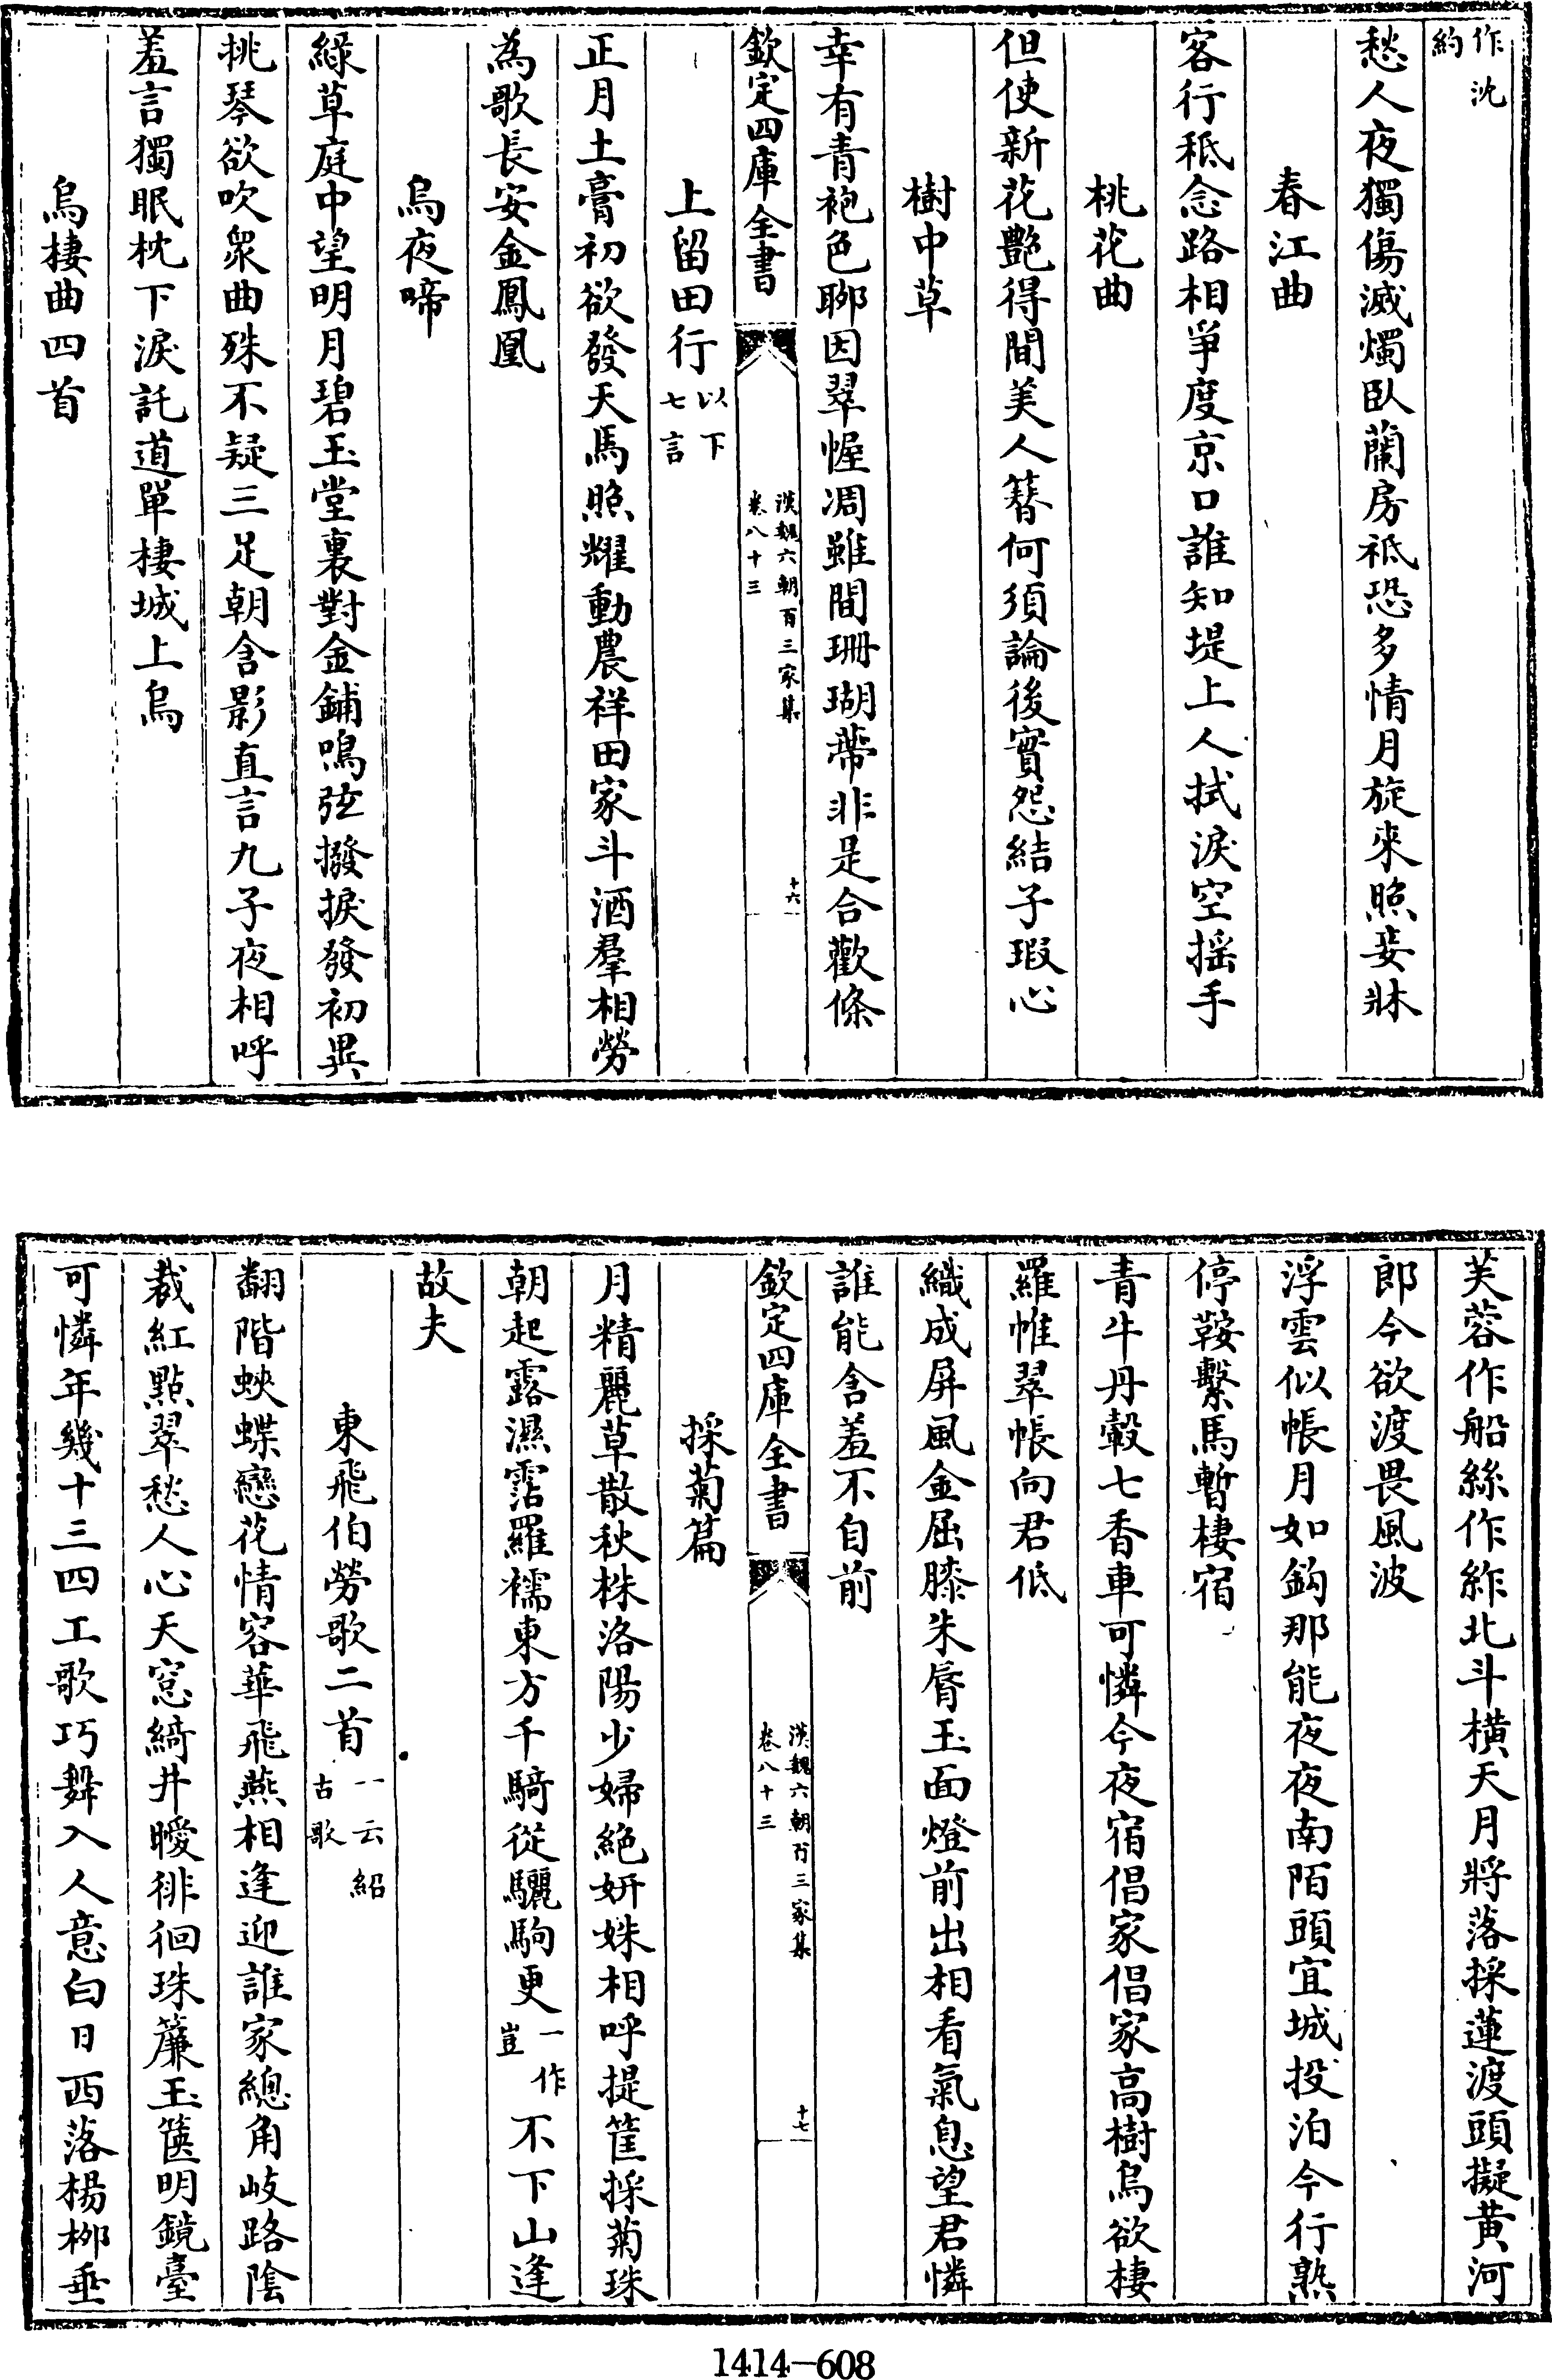 作沈
約
愁人夜獨傷滅燭臥蘭房祗恐多情月旋來照妾牀
春江曲
客行秪念路相爭度京口誰知堤上人拭淚空摇手
桃花曲
但使新花艷得間美人簪何須論後實怨結子瑕心
樹中草
幸有青袍色聊因翠幄凋雖間珊瑚蔕非是合歡條
欽定四庫全書
漢魏六朝百三家集
卷八十三
十六
上留田行以下
七言
正月土膏初欲發天馬照耀動農祥田家斗酒羣相勞
為歌長安金鳳凰
烏夜啼
綠草庭中望明月碧玉堂裏對金鋪鳴弦撥捩發初異
挑琴欲吹衆曲殊不疑三足朝含影直言九子夜相呼
羞言獨眠枕下淚託道單棲城上烏
烏棲曲四首
芙蓉作船絲作䋏北斗横天月將落採蓮渡頭擬黄河
郎今欲渡畏風波
浮雲似帳月如鈎那能夜夜南陌頭宜城投泊今行熟
停鞍繫馬暫棲宿
青牛丹轂七香車可憐今夜宿倡家倡家高樹烏欲棲
羅帷翠帳向君低
織成屏風金屈膝朱脣玉面燈前出相看氣息望君憐
誰能含羞不自前
欽定四庫全書
漢魏六朝百三家集
卷八十三
十七
採菊篇
月精麗草散秋株洛陽少婦絶妍姝相呼提筐採菊珠
朝起露濕霑羅襦東方千騎從驪駒更一作
豈不下山逢
故夫
東飛伯勞歌二首一云紹
古歌
翻階蛺蝶戀花情容華飛燕相逢迎誰家總角岐路陰
裁紅點翠愁人心天窓綺井曖徘徊珠簾玉篋明鏡臺
可憐年幾十三四工歌巧舞入人意白日西落楊柳垂
1414—608